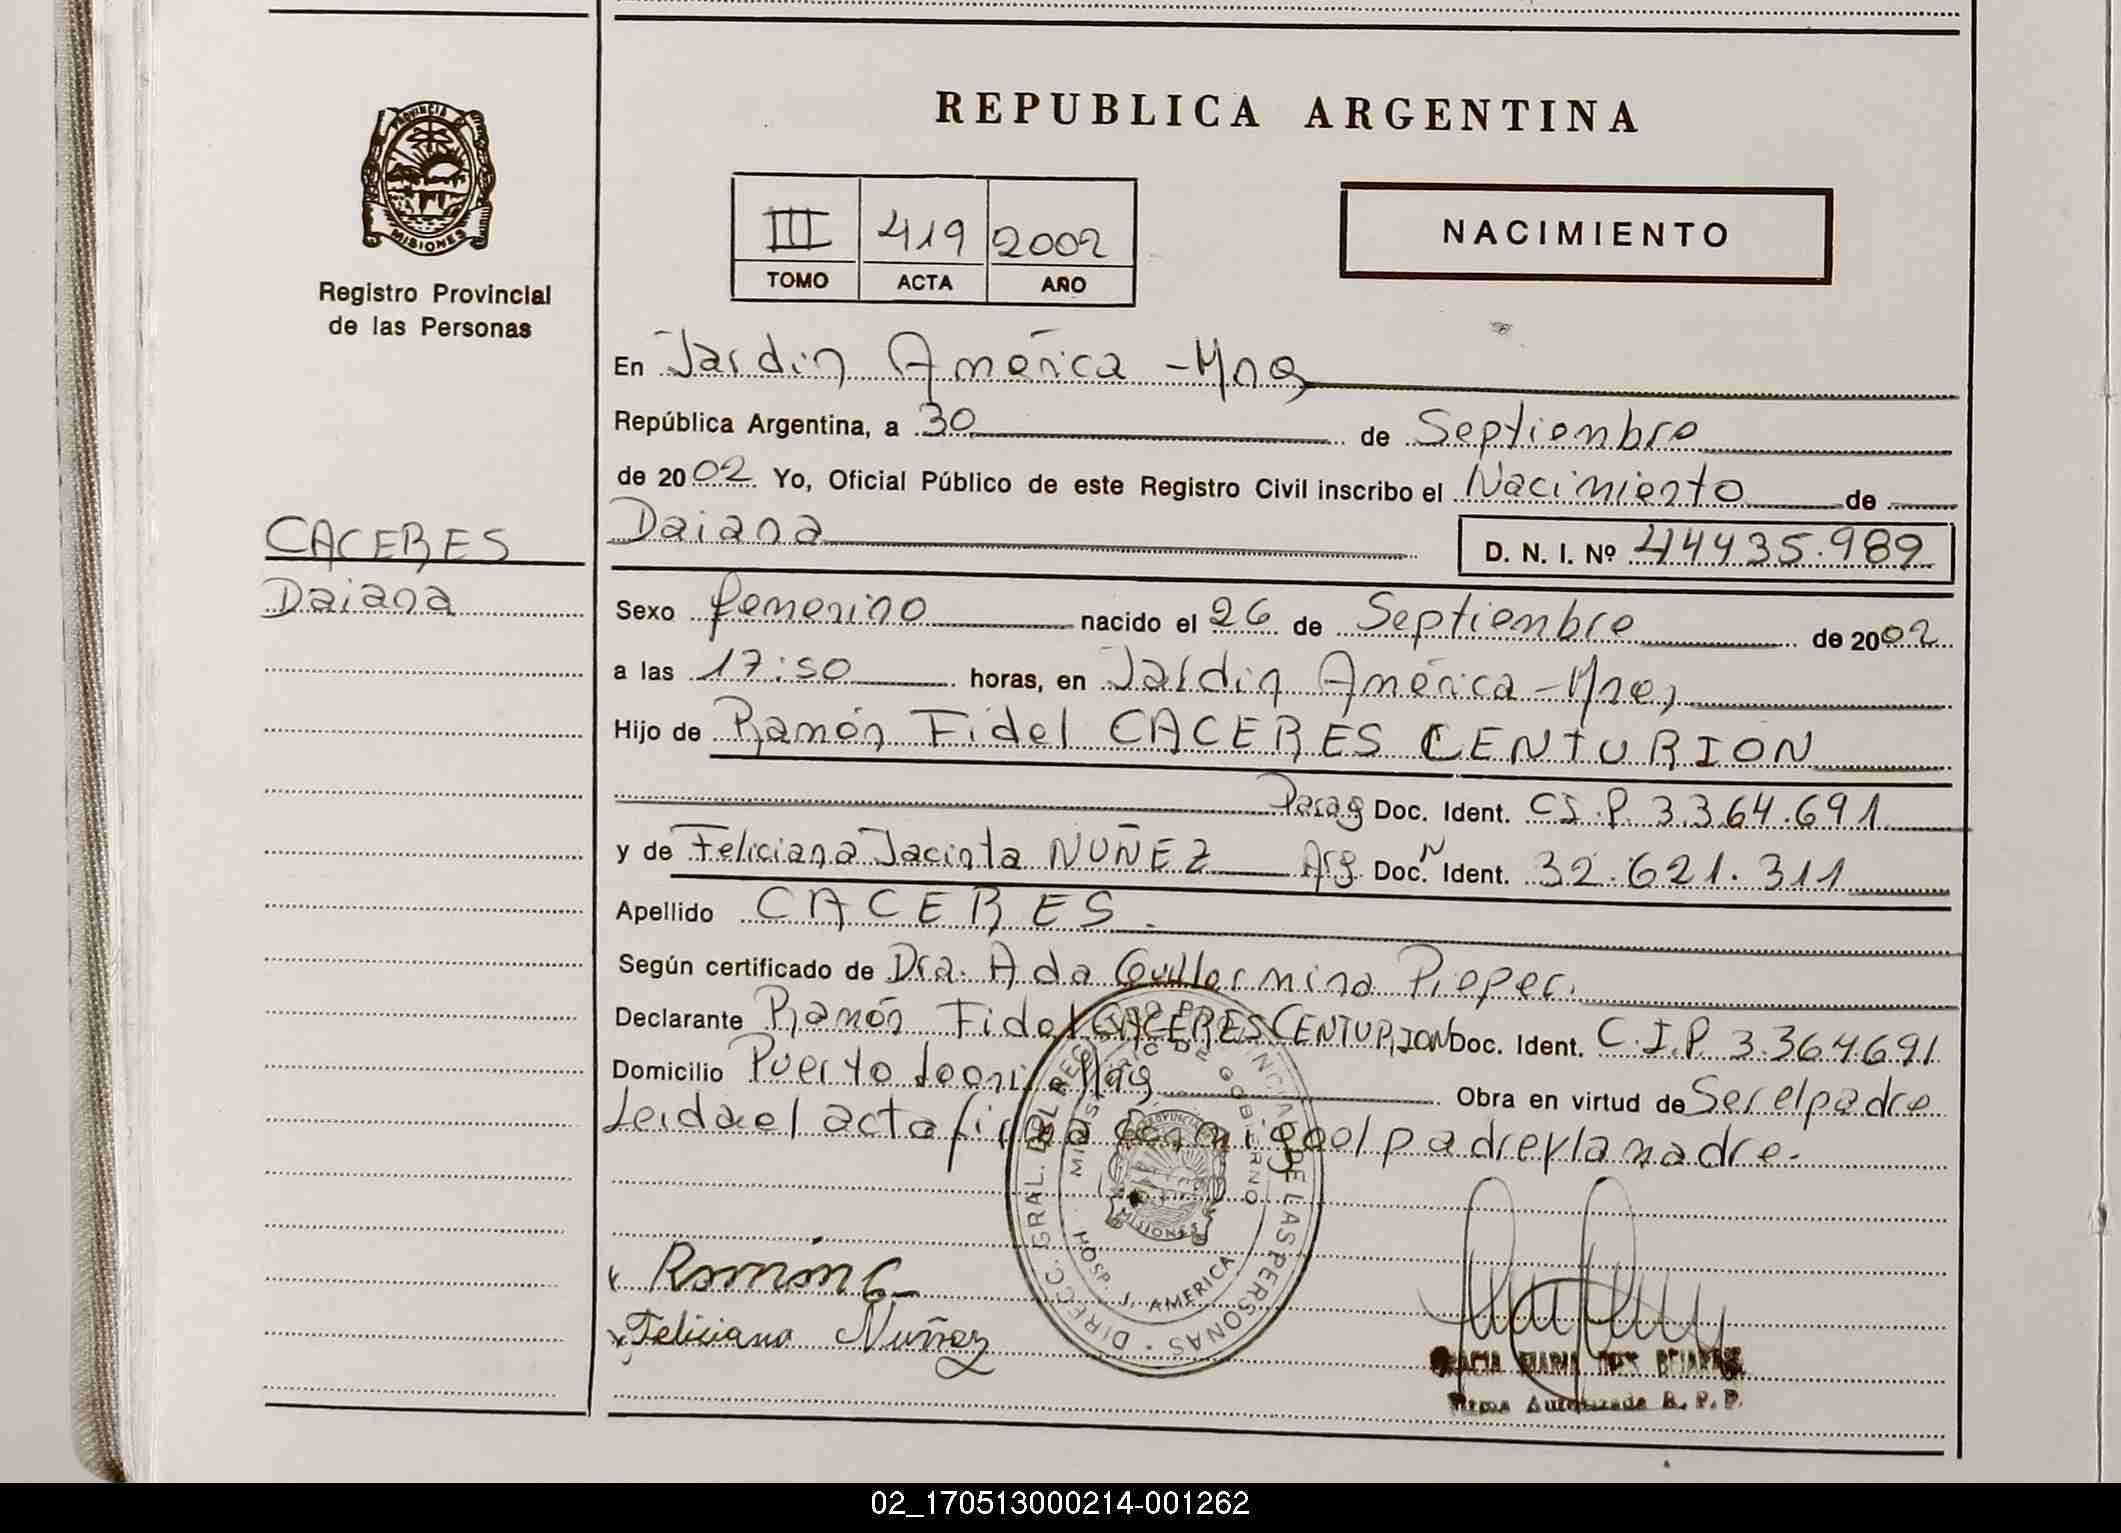 REPUBLICA ARGENTINA
PROVINCIA DE
MISIONES
Registro Provincial
de las Personas
III 419 2002
TOMO ACTA AÑO
NACIMIENTO
En Jardin América - Mnes
República Argentina, a 30 de Septiembre
de 2002 Yo, Oficial Público de este Registro Civil inscribo el Nacimiento de
Daiana D. N. I. Nº 44435.989
CACERES
Daiana
Sexo femenino nacido el 26 de Septiembre de 2002
a las 17:50 horas, en Jardin América - Mnes
Hijo de Ramón Fidel CACERES CENTURION
Parag Doc. Ident. C.I.P. 3.364.691
y de Feliciana Jacinta NUÑEZ Arg Doc. N Ident. 32.621.311
Apellido CACERES.
Según certificado de Dra. Ada Guillermina Pieper.
Declarante Ramón Fidel CACERES CENTURION Doc. Ident. C.I.P. 3.364.691
Domicilio Puerto Leoni Obra en virtud de Ser el padre
Leida el acta firma conmigo el padre y la madre.
DIRECC. GRAL. DEL REGISTRO PROVINCIAL DE LAS PERSONAS
MINISTERIO DE GOBIERNO
PROVINCIA
MISIONES
HOSP. J. AMERICA
Ramón C
Feliciana Nuñez
MARIA
Firma Autorizada R. P. P.
02_170513000214-001262